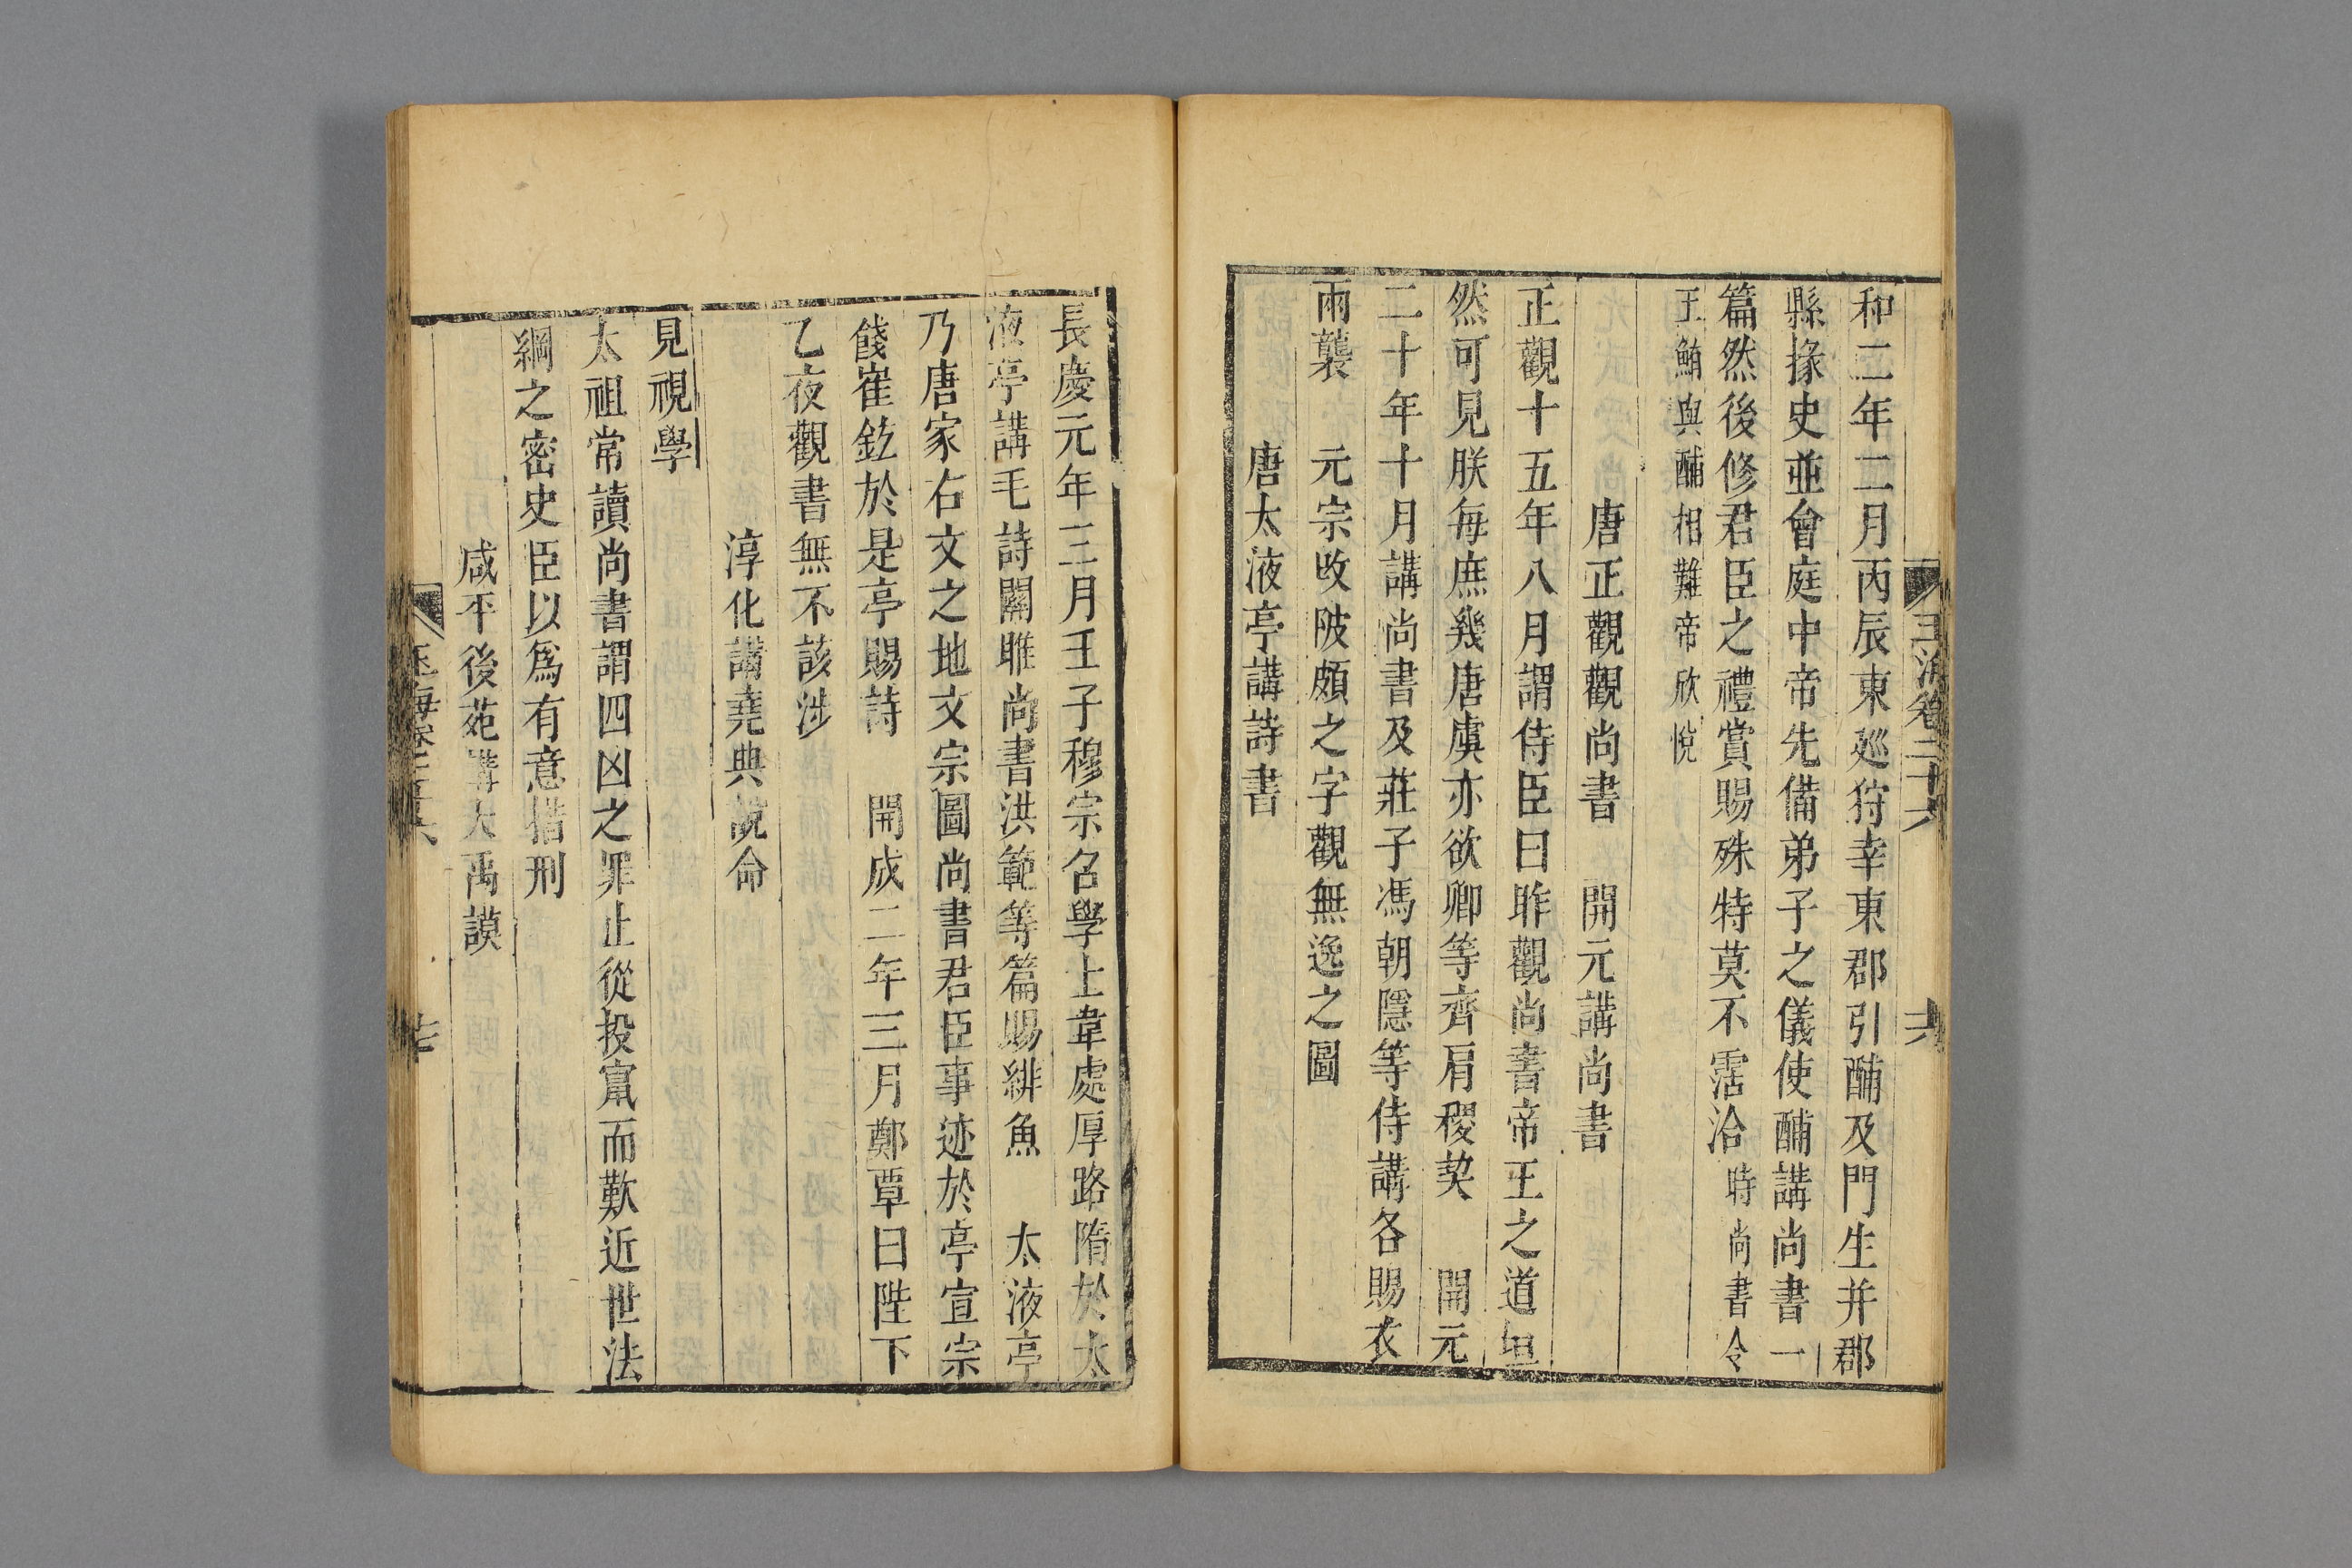 玉海卷二十六
六
和二年二月丙辰東廵狩幸東郡引酺及門生并郡
縣掾史並會庭中帝先備弟子之儀使酺講尚書一
篇然後修君臣之禮賞賜殊特莫不霑洽時尚書令
王鮪與酺相難帝欣悅
唐正觀觀尚書 開元講尚書
正觀十五年八月謂侍臣曰昨觀尚書帝王之道坦
然可見朕每庶幾唐虞亦欲卿等齊肩稷契 開元
二十年十月講尚書及莊子馮朝隱等侍講各賜衣
兩襲 元宗改陂頗之字觀無逸之圖
唐太液亭講詩書
長慶元年三月壬子穆宗召學士韋處厚路隋於太
液亭講毛詩關雎尚書洪範等篇賜緋魚 太液亭
乃唐家右文之地文宗圖尚書君臣事迹於亭宣宗
餞崔鉉於是亭賜詩 開成二年三月鄭覃曰陛下
乙夜觀書無不該涉
淳化講堯典說命
見視學
太祖常讀尚書謂四凶之罪止從投竄而歎近世法
綱之密史臣以爲有意措刑
咸平後苑講大禹謨
玉海卷二十六
七